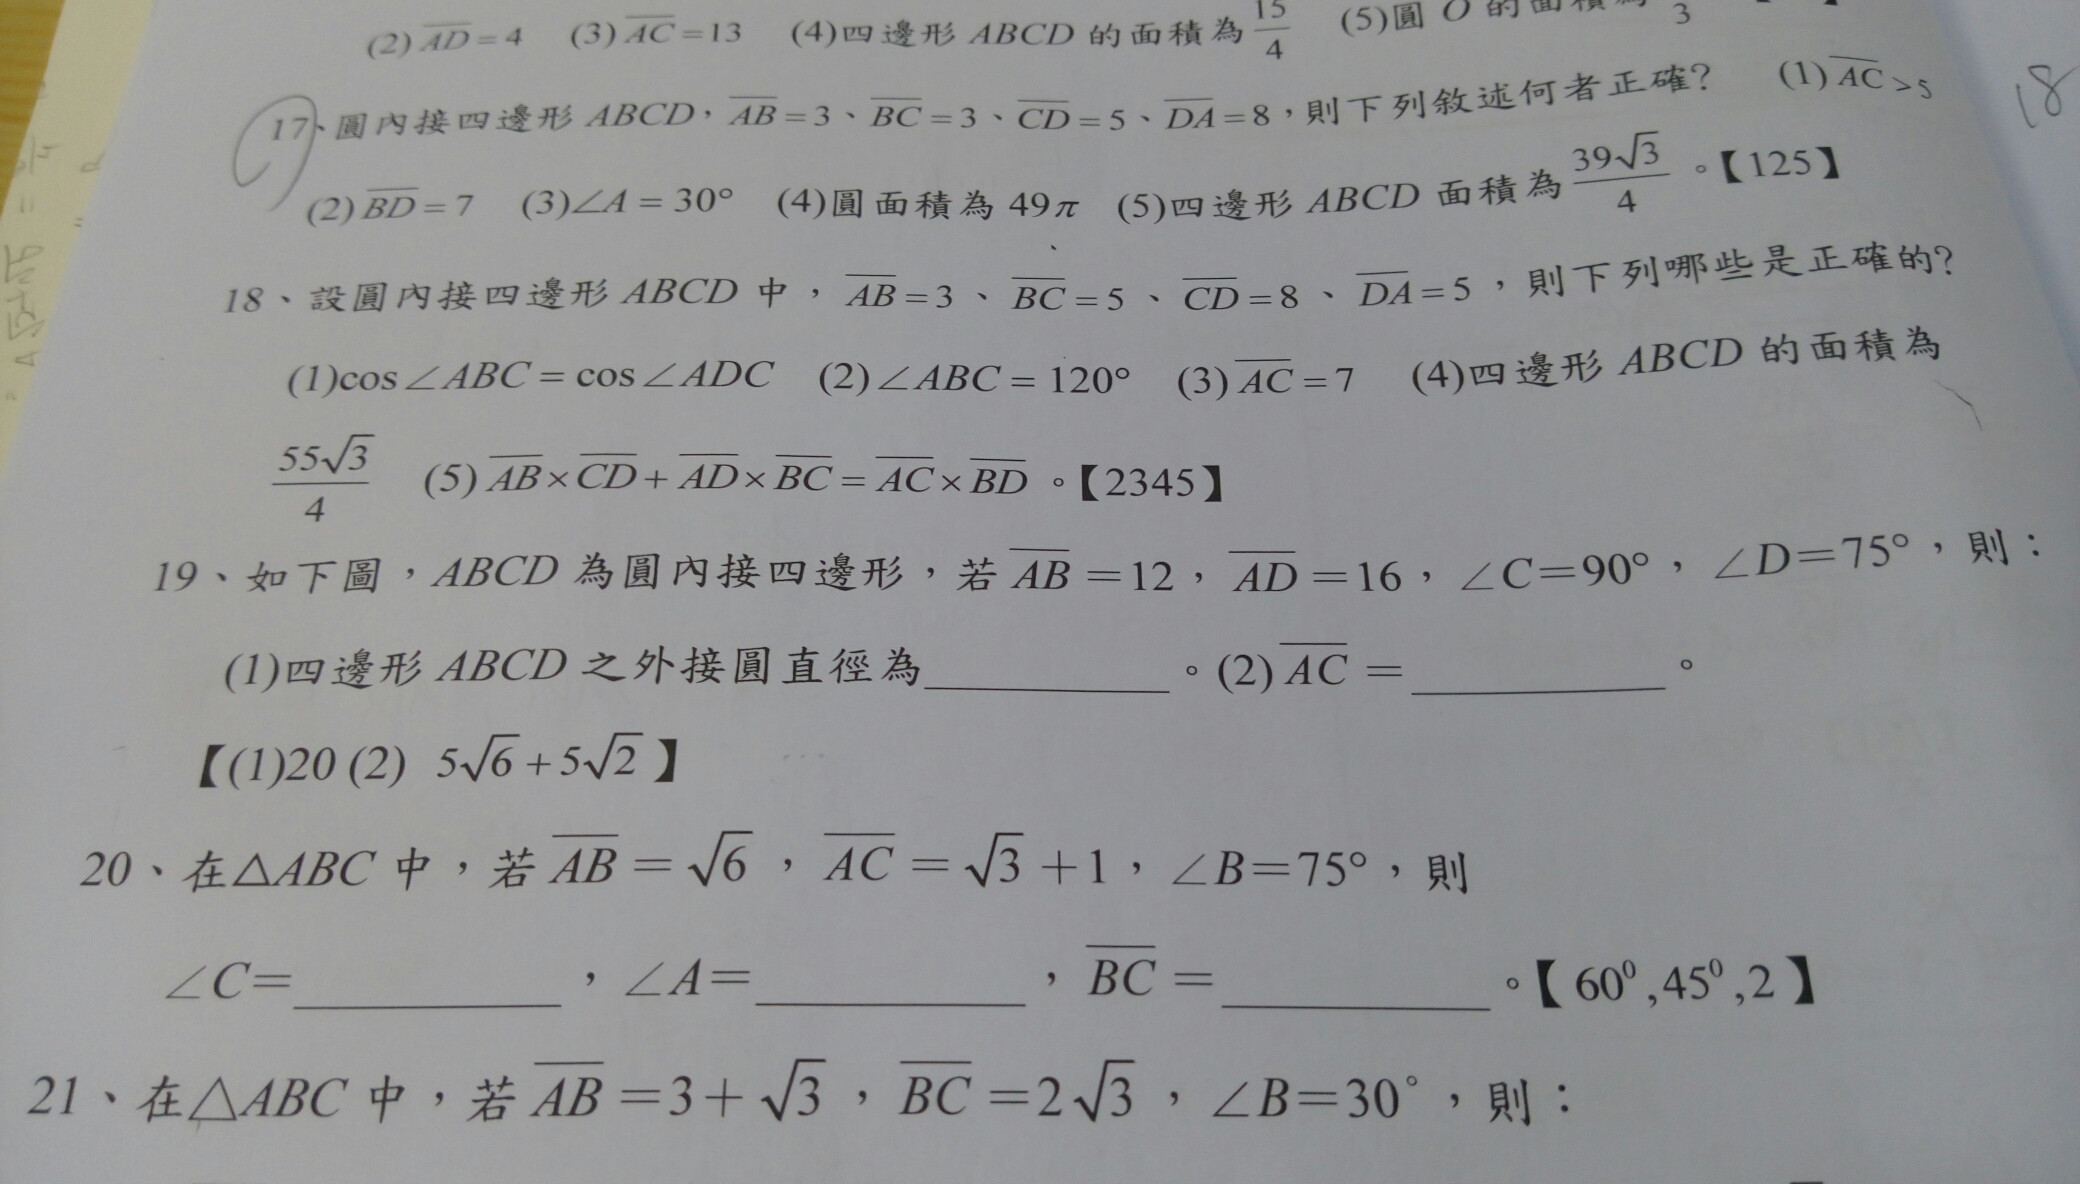 (2) AD = 4 (3) AC = 13 (4)四邊形 ABCD 的面積為 15/4 (5)圓 O 的面積為 3
17、圓內接四邊形 ABCD，AB = 3、BC = 3、CD = 5、DA = 8，則下列敘述何者正確? (1) AC > 5
18
(2) BD = 7 (3)∠A = 30° (4)圓面積為 49π (5)四邊形 ABCD 面積為 39√3/4 。【125】
18、設圓內接四邊形 ABCD 中，AB = 3、BC = 5、CD = 8、DA = 5，則下列哪些是正確的?
(1)cos∠ABC = cos∠ADC (2)∠ABC = 120° (3) AC = 7 (4)四邊形 ABCD 的面積為
55√3/4 (5) AB × CD + AD × BC = AC × BD 。【2345】
19、如下圖，ABCD 為圓內接四邊形，若 AB =12，AD =16，∠C=90°，∠D=75°，則：
(1)四邊形 ABCD 之外接圓直徑為__________。(2) AC = __________。
【(1)20 (2) 5√6 + 5√2 】
20、在△ABC 中，若 AB = √6 ，AC = √3 +1，∠B=75°，則
∠C=__________，∠A=__________，BC = __________。【 60⁰ ,45⁰ ,2 】
21、在△ABC 中，若 AB =3+ √3 ，BC =2√3 ，∠B=30°，則：